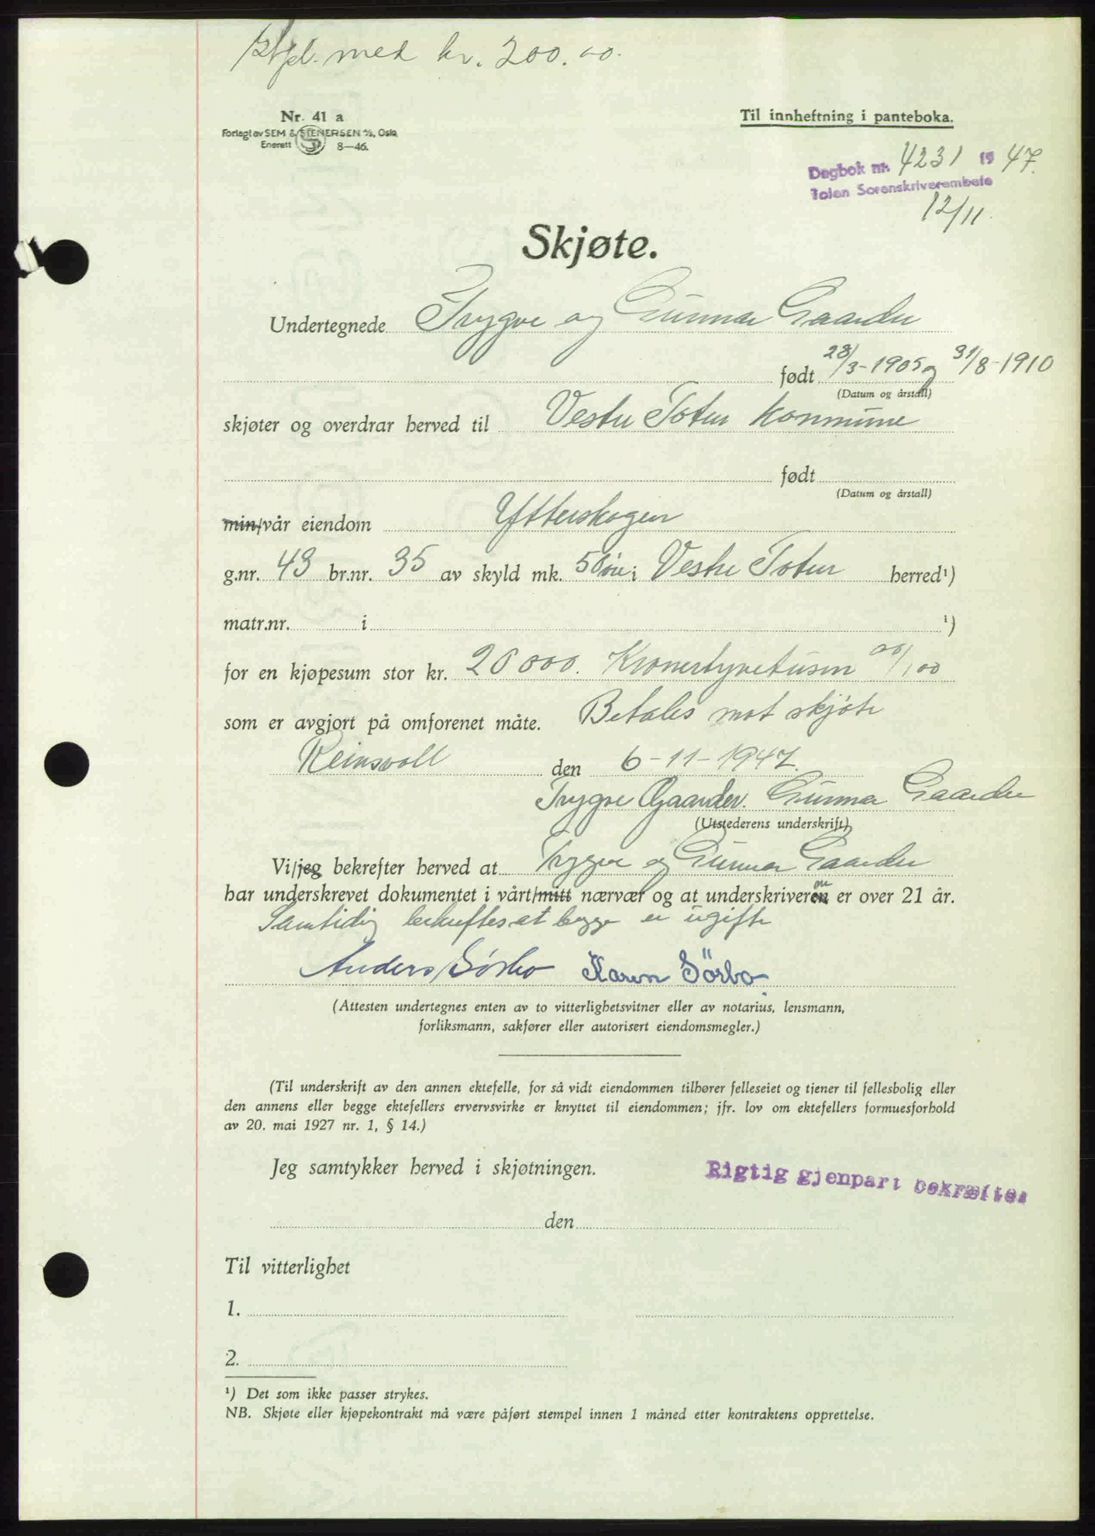 Stpl. med kr. 200.00.
Nr. 41 a
Forlagt av SEM & STENERSEN A/S, Oslo
Enerett 8—46.
Til innheftning i panteboka.
Dagbok nr. 4231 19 47.
Toten Sorenskriverembete
12/11.
Skjøte.
Undertegnede Trygve og Gunnar Gaarder
født 28/3-1905 og 31/8-1910
(Datum og årstall)
skjøter og overdrar herved til Vestre Toten Kommune
født
(Datum og årstall)
min/vår eiendom Ytterskogen
g.nr. 43 br.nr. 35 av skyld mk. 50 øre i Vestre Toten herred¹)
matr.nr. i ¹)
for en kjøpesum stor kr. 20000. Kronertyvetusen 00/100
som er avgjort på omforenet måte. Betales mot skjøte
Reinsvoll den 6-11-1947.
Trygve Gaarder. Gunnar Gaarder
(Utstederens underskrift)
Vi/jeg bekrefter herved at Trygve og Gunnar Gaarder
har underskrevet dokumentet i vårt/mitt nærvær og at underskriveren er over 21 år.
Samtidig bekreftes at begge er ugifte
Anders Sørbo Karen Sörbo.
(Attesten undertegnes enten av to vitterlighetsvitner eller av notarius, lensmann,
forliksmann, sakfører eller autorisert eiendomsmegler.)
(Til underskrift av den annen ektefelle, for så vidt eiendommen tilhører felleseiet og tjener til fellesbolig eller
den annens eller begge ektefellers ervervsvirke er knyttet til eiendommen; jfr. lov om ektefellers formuesforhold
av 20. mai 1927 nr. 1, § 14.)
Jeg samtykker herved i skjøtningen.
Rigtig gjenpart bekræftes
den
Til vitterlighet
1.
2.
¹) Det som ikke passer strykes.
NB. Skjøte eller kjøpekontrakt må være påført stempel innen 1 måned etter kontraktens opprettelse.